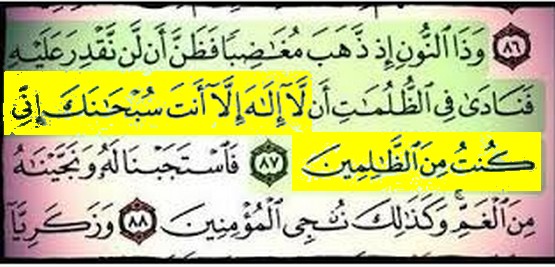 ﴿٨٦﴾ وَذَا ٱلنُّونِ إِذ ذَّهَبَ مُغَٰضِبًا فَظَنَّ أَن لَّن نَّقْدِرَ عَلَيْهِ
فَنَادَىٰ فِى ٱلظُّلُمَٰتِ أَن لَّآ إِلَٰهَ إِلَّآ أَنتَ سُبْحَٰنَكَ إِنِّى
كُنتُ مِنَ ٱلظَّٰلِمِينَ ﴿٨٧﴾ فَٱسْتَجَبْنَا لَهُۥ وَنَجَّيْنَٰهُ
مِنَ ٱلْغَمِّ ۚ وَكَذَٰلِكَ نُۨجِى ٱلْمُؤْمِنِينَ ﴿٨٨﴾ وَزَكَرِيَّآ